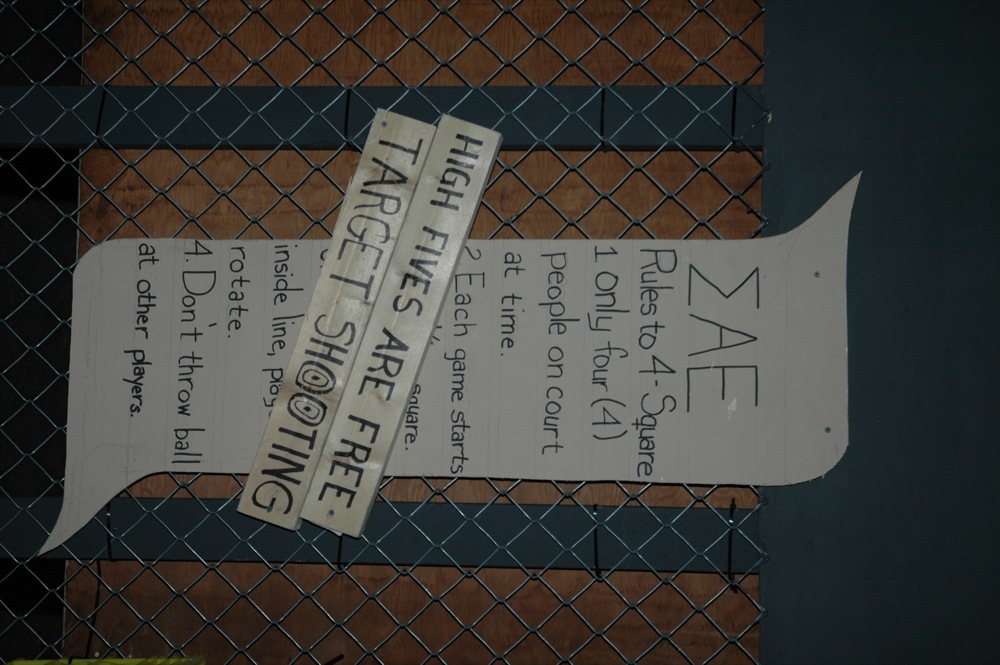 ΣAE
Rules to 4-Square
1. Only four (4)
people on court
at time.
2 Each game starts
square.
inside line, play
rotate.
4. Don't throw ball
at other players.
HIGH FIVES ARE FREE
TARGET SHOOTING